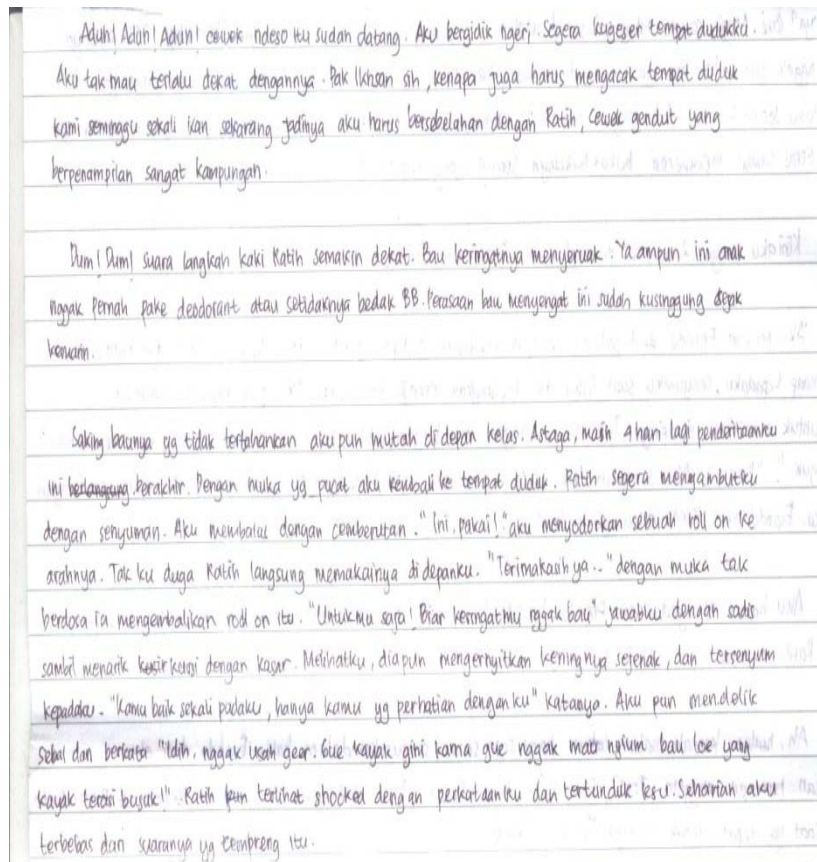 Aduh! Aduh! Aduh! cewek ndeso itu sudah datang. Aku bergidik ngeri. Segera kugeser tempat dudukku.
Aku tak mau terlalu dekat dengannya. Pak Ikhsan sih, kenapa juga harus mengacak tempat duduk
kami seminggu sekali kan sekarang jadinya aku harus bersebelahan dengan Ratih, cewek gendut yang
berpenampilan sangat kampungan.
Dum! Dum! suara langkah kaki Ratih semakin dekat. Bau keringatnya menyeruak. Ya ampun ini anak
nggak pernah pake deodorant atau setidaknya bedak BB. Perasaan bau menyengat ini sudah kusinggung sejak
kemarin.
Saking baunya yg tidak tertahankan aku pun mutah di depan kelas. Astaga, masih 4 hari lagi penderitaanku
ini berlangsung berakhir. Dengan muka yg pucat aku kembali ke tempat duduk. Ratih segera mengambutku
dengan senyuman. Aku membalas dengan cemberutan. "Ini pakai!" aku menyodorkan sebuah roll on ke
arahnya. Tak ku duga Ratih langsung memakainya di depanku. "Terimakasih ya.." dengan muka tak
berdosa ia mengembalikan roll on itu. "Untukmu saja! Biar keringatmu nggak bau" jawabku dengan sadis
sambil menarik kursi dengan kasar. Melihatku, diapun mengernyitkan keningnya sejenak, dan tersenyum
kepadaku. "Kamu baik sekali padaku, hanya kamu yg perhatian denganku" katanya. Aku pun mendelik
sebal dan berkata "Idih, nggak usah geer. Gue kayak gini karna gue nggak mau ngium bau loe yang
kayak terasi busuk!" Ratih pun terlihat shocked dengan perkataanku dan tertunduk lesu. Seharian aku
terbebas dari suaranya yg cempreng itu.